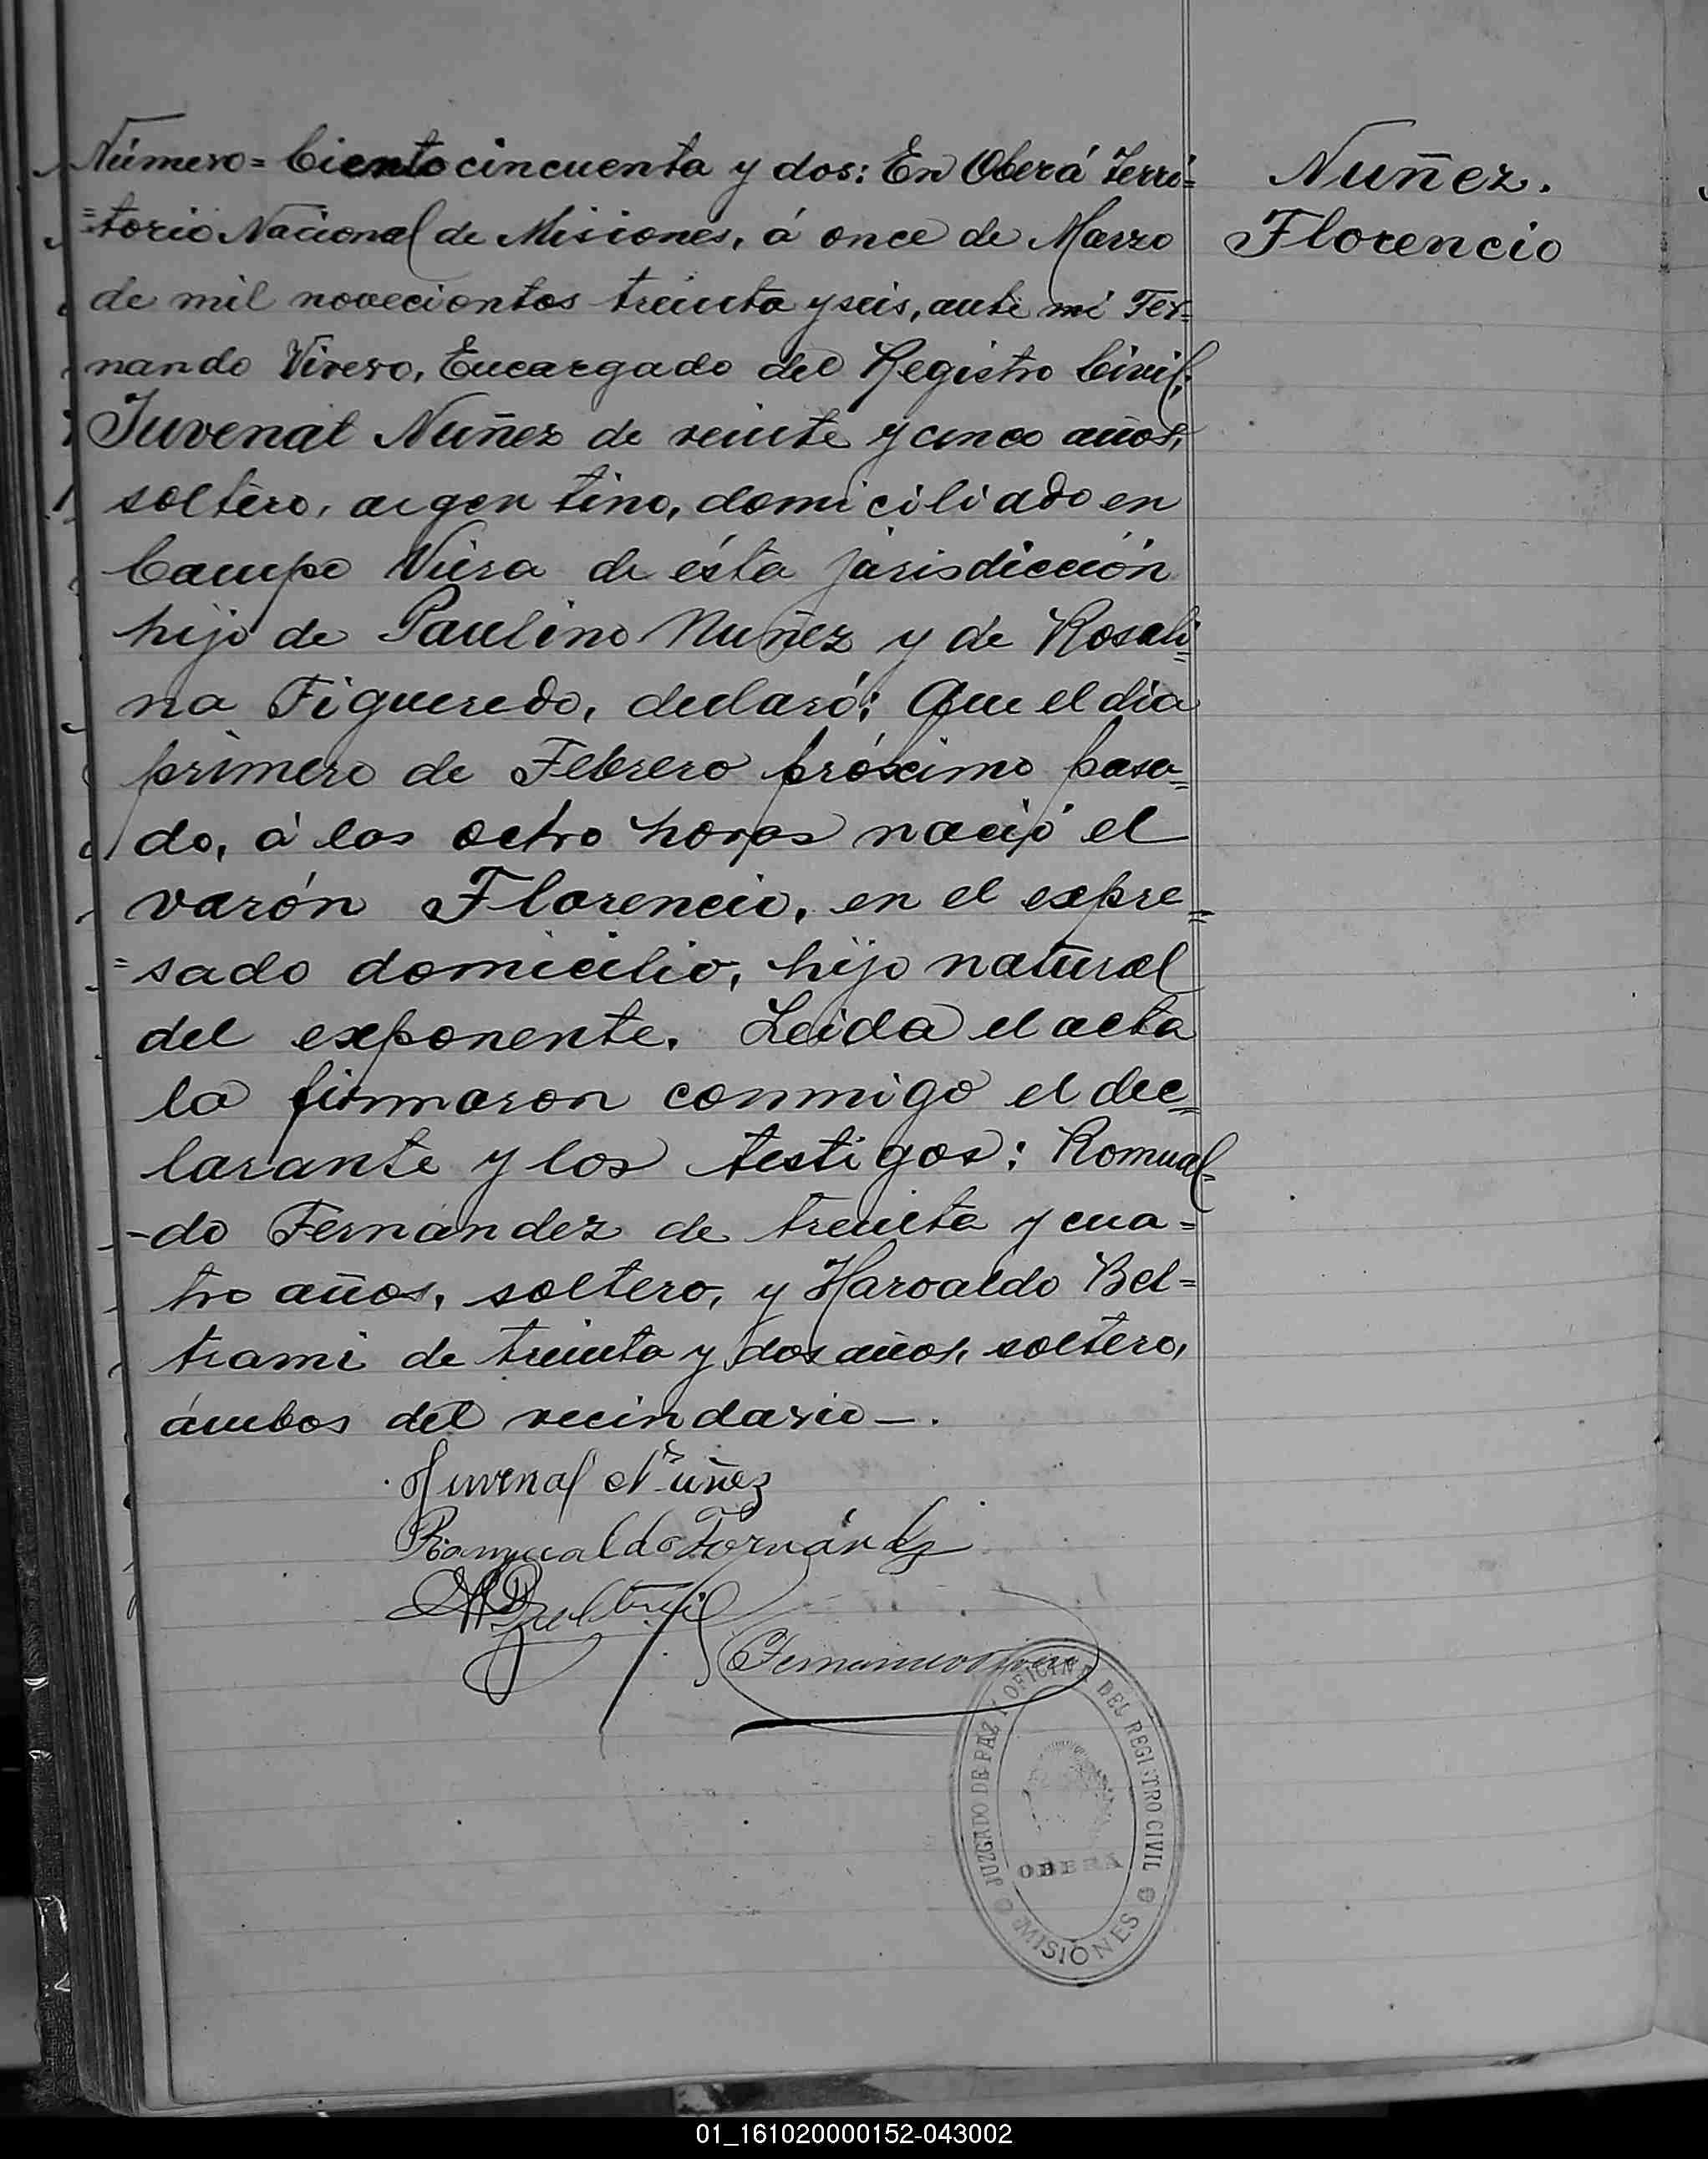 Número = Ciento cincuenta y dos: En Oberá Terri=
=torio Nacional de Misiones, á once de Marzo
de mil novecientos treinta y seis, ante mi Fer=
nando Vivero, Encargado del Registro Civil;
Juvenal Nuñez de veinte y cinco años,
soltero, argentino, domiciliado en
Campo Viera de ésta jurisdicción
hijo de Paulino Nuñez y de Rosali=
na Figueredo, declaró: Que el día
primero de Febrero próximo pasa=
do, á las ocho horas nació el
varón Florencio, en el expre=
=sado domicilio, hijo natural
del exponente. Leida el acta
la firmaron conmigo el dec=
larante y los testigos: Romual=
-do Fernández de treinta y cua=
tro años, soltero, y Haroaldo Bel=
trami de treinta y dos años, soltero,
ámbos del vecindario—.
Nuñez.
Florencio
Juvenal Núñez
Romualdo Fernández
JUZGADO DE PAZ Y OFICINA DEL REGISTRO CIVIL
OBERÁ
MISIONES
01_161020000152-043002